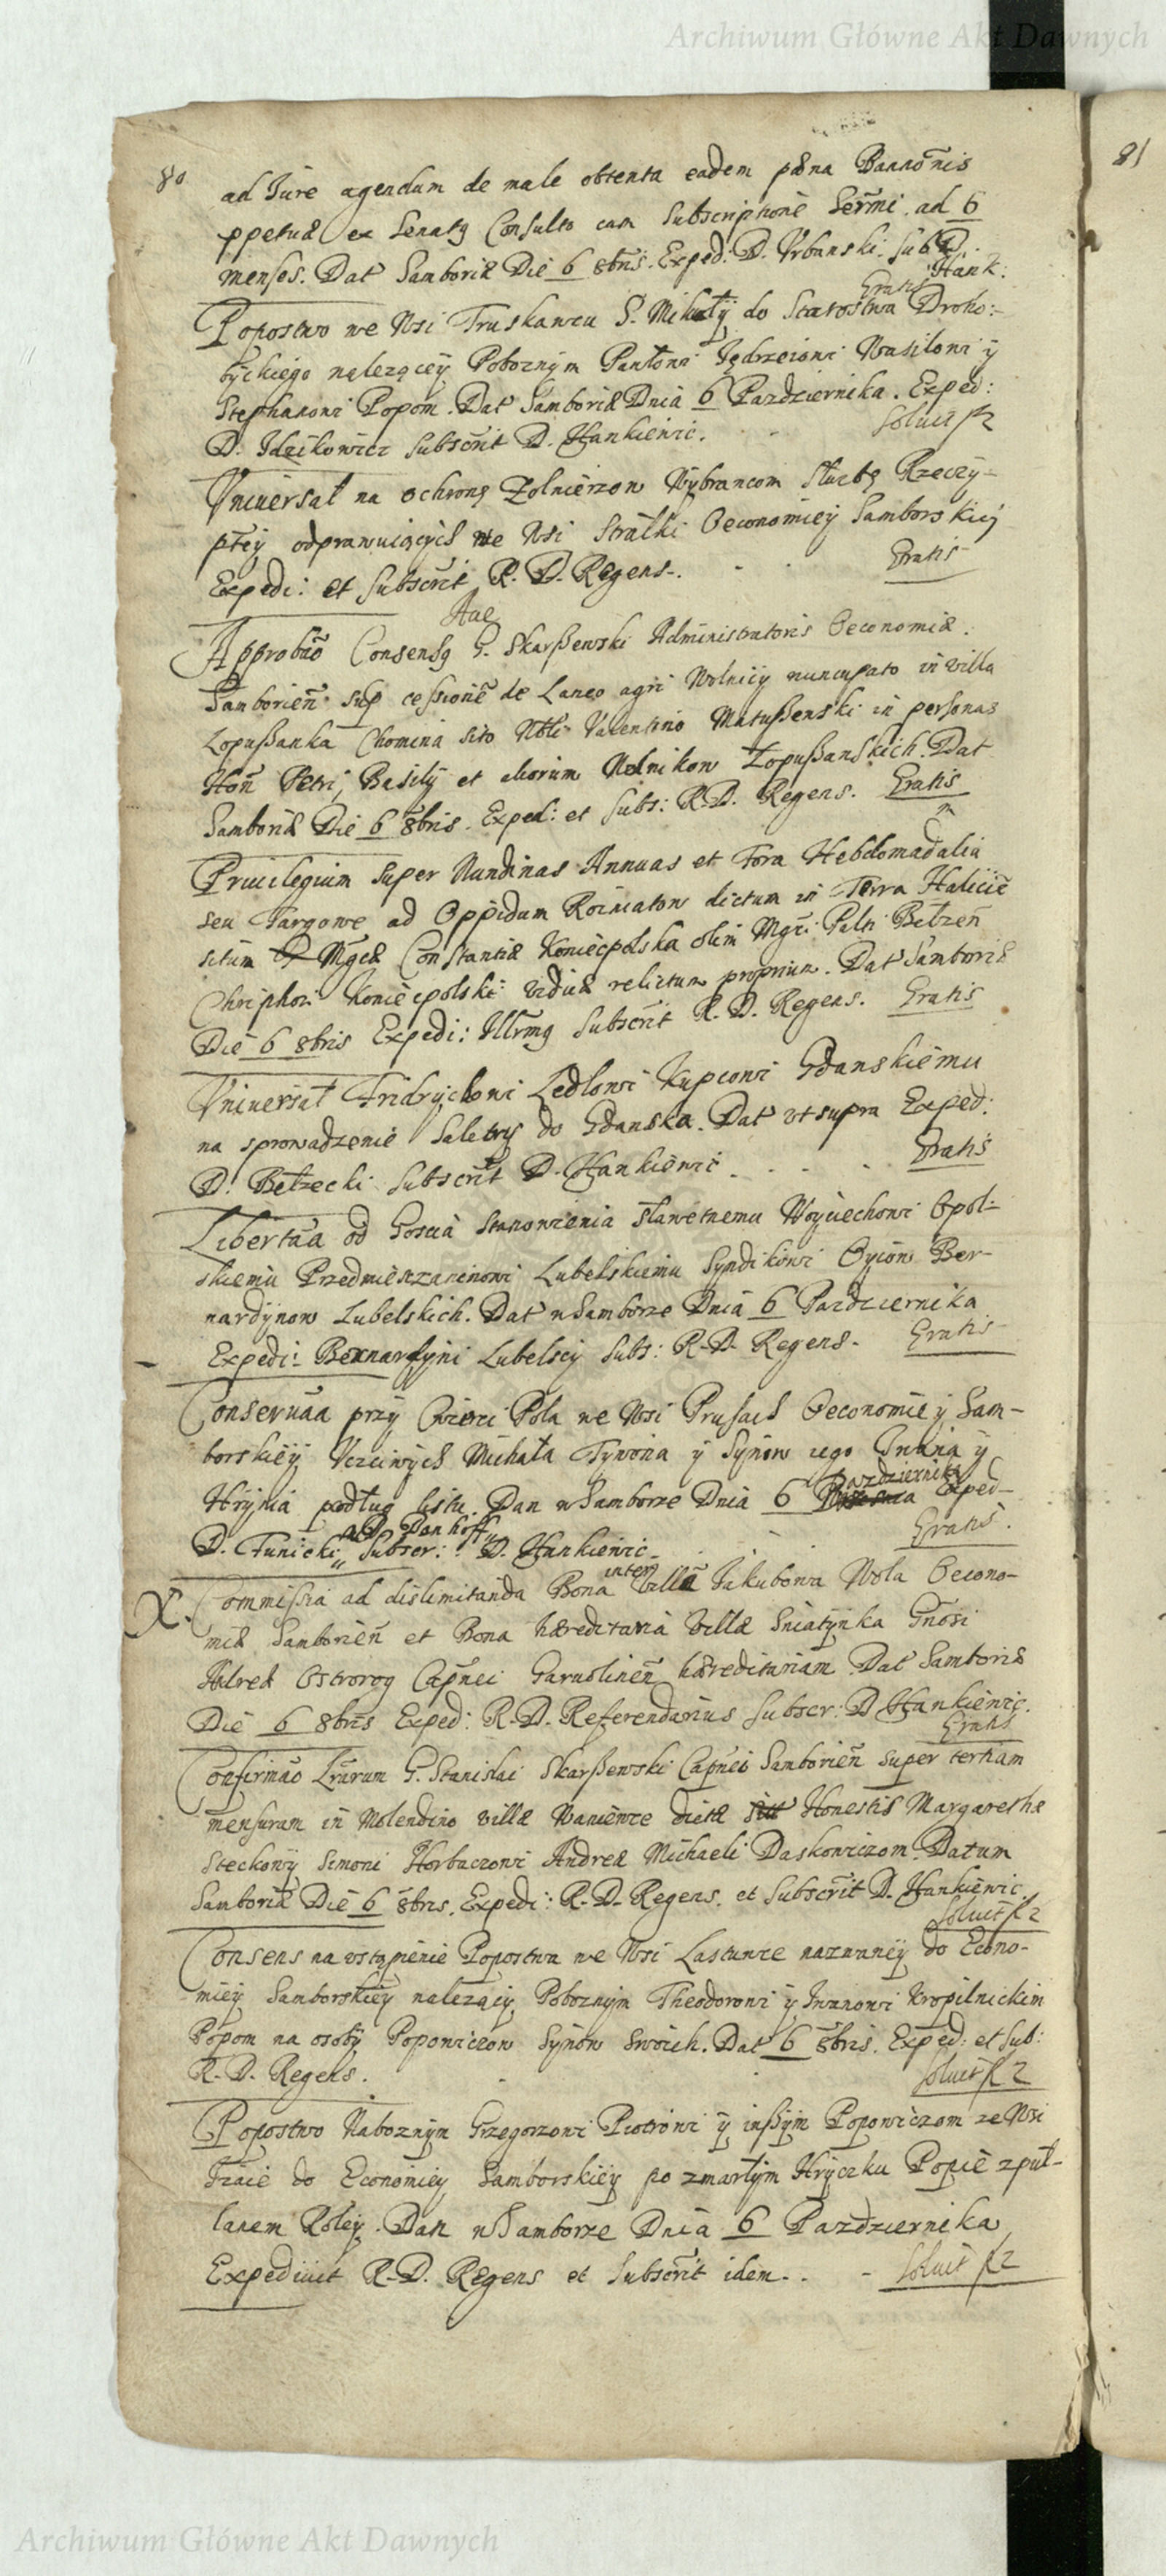 Archiwum Główne Akt Dawnych
80
81
ad Jure agendum de male obtenta eadem pæna Bannõnis
ppetuæ ex Senatq Consulto cum Subscriptione Sermi. ad 6
menses. Dat Samboriæ Die 6 8bris. Exped: D. Vrbanski. Sub D.
Hank:
Gratis
Popostwo we Wsi Truskawcu S. Mikołÿ do Starostwa Droho:-
bÿckiego naleząceÿ Poboznÿm Pawłowi Jędrzeiowi Wasilowi ÿ
Stephanowi Popom. Dat Samboriæ Dnia 6 Pazdziernika. Exped:
D. Idzikowicz Subscrit D. Hankiewic. Soluit f 2
Vniuersał na ochronę Zolnierzow Wÿbrancom słuzbę Rzeczÿ-
ptey odprawuiącÿch we Wsi Strałki Oeconomieÿ Samborskieÿ
Expedi: et Subscrit R. D. Regens. Gratis
Aue
Approbão Consensq G. Skarßewski Administratoris Oeconomiæ.
Samborień sup ceßionẽ de Laneo agri Wolnicÿ nuncupato in villa
Łopußanka Chomina sito Nõli Valentino Matußenski in personas
Hon Petri, Basilÿ et aliorum Melnikow Łopußanskich. Dat
Samboriæ Die 6 8bris. Exped: et Subs: R. D. Regens. Gratis
Priuilegium super Nundinas Annuas et Fora Hebdomadalia
seu Targowe ad Oppidum Rozniatow dictum in Terra Halicieñ
situm Mgcæ Constantiæ Koniecpolska olim Mgci Palti Bełzeñ
Chriphori Koniecpolski viduæ relictum proprium. Dat Samboriæ
Die 6 8bris Expedi: Illrmq Subscrit R. D. Regens. Gratis
Vniuersał Fridrychowi Ledlowi Kupcowi Gdanskiemu
na sprowadzenie Saletrÿ do Gdanska. Dat vt supra Exped:
D. Bełzecki Subscrit D. Hankiewic. Gratis
Libertãa od Goscia Stanowienia sławetnemu Woÿciechowi Opol-
skiemu Przedmieszczaninowi Lubelskiemu Syndikowi Oÿcow Ber-
nardÿnow Lubelskich. Dat w Samborze Dnia 6 Pazdziernika
Expedi: Bernardÿni Lubelscy Subs: R. D. Regens. Gratis
Conseruãa przÿ Cwierci Pola we Wsi Prusach Oeconomieÿ Sam-
borskieÿ Vczciwÿch Michała Tÿwona ÿ Sÿnow iego Iwana ÿ
Hrÿnia podług listu. Dan w Samborze Dnia 6 Pazdziernika Exped-
a D. Denhoff
D. Tunicki Subscr: D. Hankiewic. Gratis.
X. Commißia ad dislimitanda Bona inter villã Jakubowa Wola Oecono-
miæ Samborień et Bona hæreditaria villæ Sniatÿnka Gñosi
Alred Ostrorog Capnei Garwolineñ hæreditariam. Dat Samboriæ
Die 6 8bris Exped: R. D. Referendarius Subscr: D Hankiewic.
Gratis
Confirmão Lrarum G. Stanislai Skarßewski Capnei Samborień super tertiam
mensuram in Molendino villæ Waniewice dictæ Honestis Margarethæ
Steckowÿ Simoni Horbaczowi Andreæ Michaeli Daskowiczom. Datum
Samboriæ Die 6 8bris. Expedi: R. D. Regens. et Subscrit D. Hankiewic
Soluit f 2
Consens na vstąpienie Popostwa we Wsi Lastuwce nazwaneÿ do Econo-
mieÿ Samborskieÿ nalezącÿ Poboznÿm Theodorowi ÿ Iwanowi Kropilnickim
Popom na osobÿ Popowiczow Sÿnow swoich. Dat 6 8bris. Exped: et Sub:
R. D. Regens. Soluit f 2
Popostwo Naboznÿm Grzegorzowi Piotrowi ÿ inßÿm Popowiczom ze Wsi
do Economieÿ Samborskieÿ po zmarłÿm Hrÿczku Popie z puł-
lanem Roleÿ. Dan w Samborze Dnia 6 Pazdziernika
Expediuit R. D. Regens et Subscrit idem. Soluit f 2
Archiwum Główne Akt Dawnych